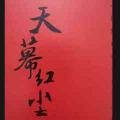 天幕红尘